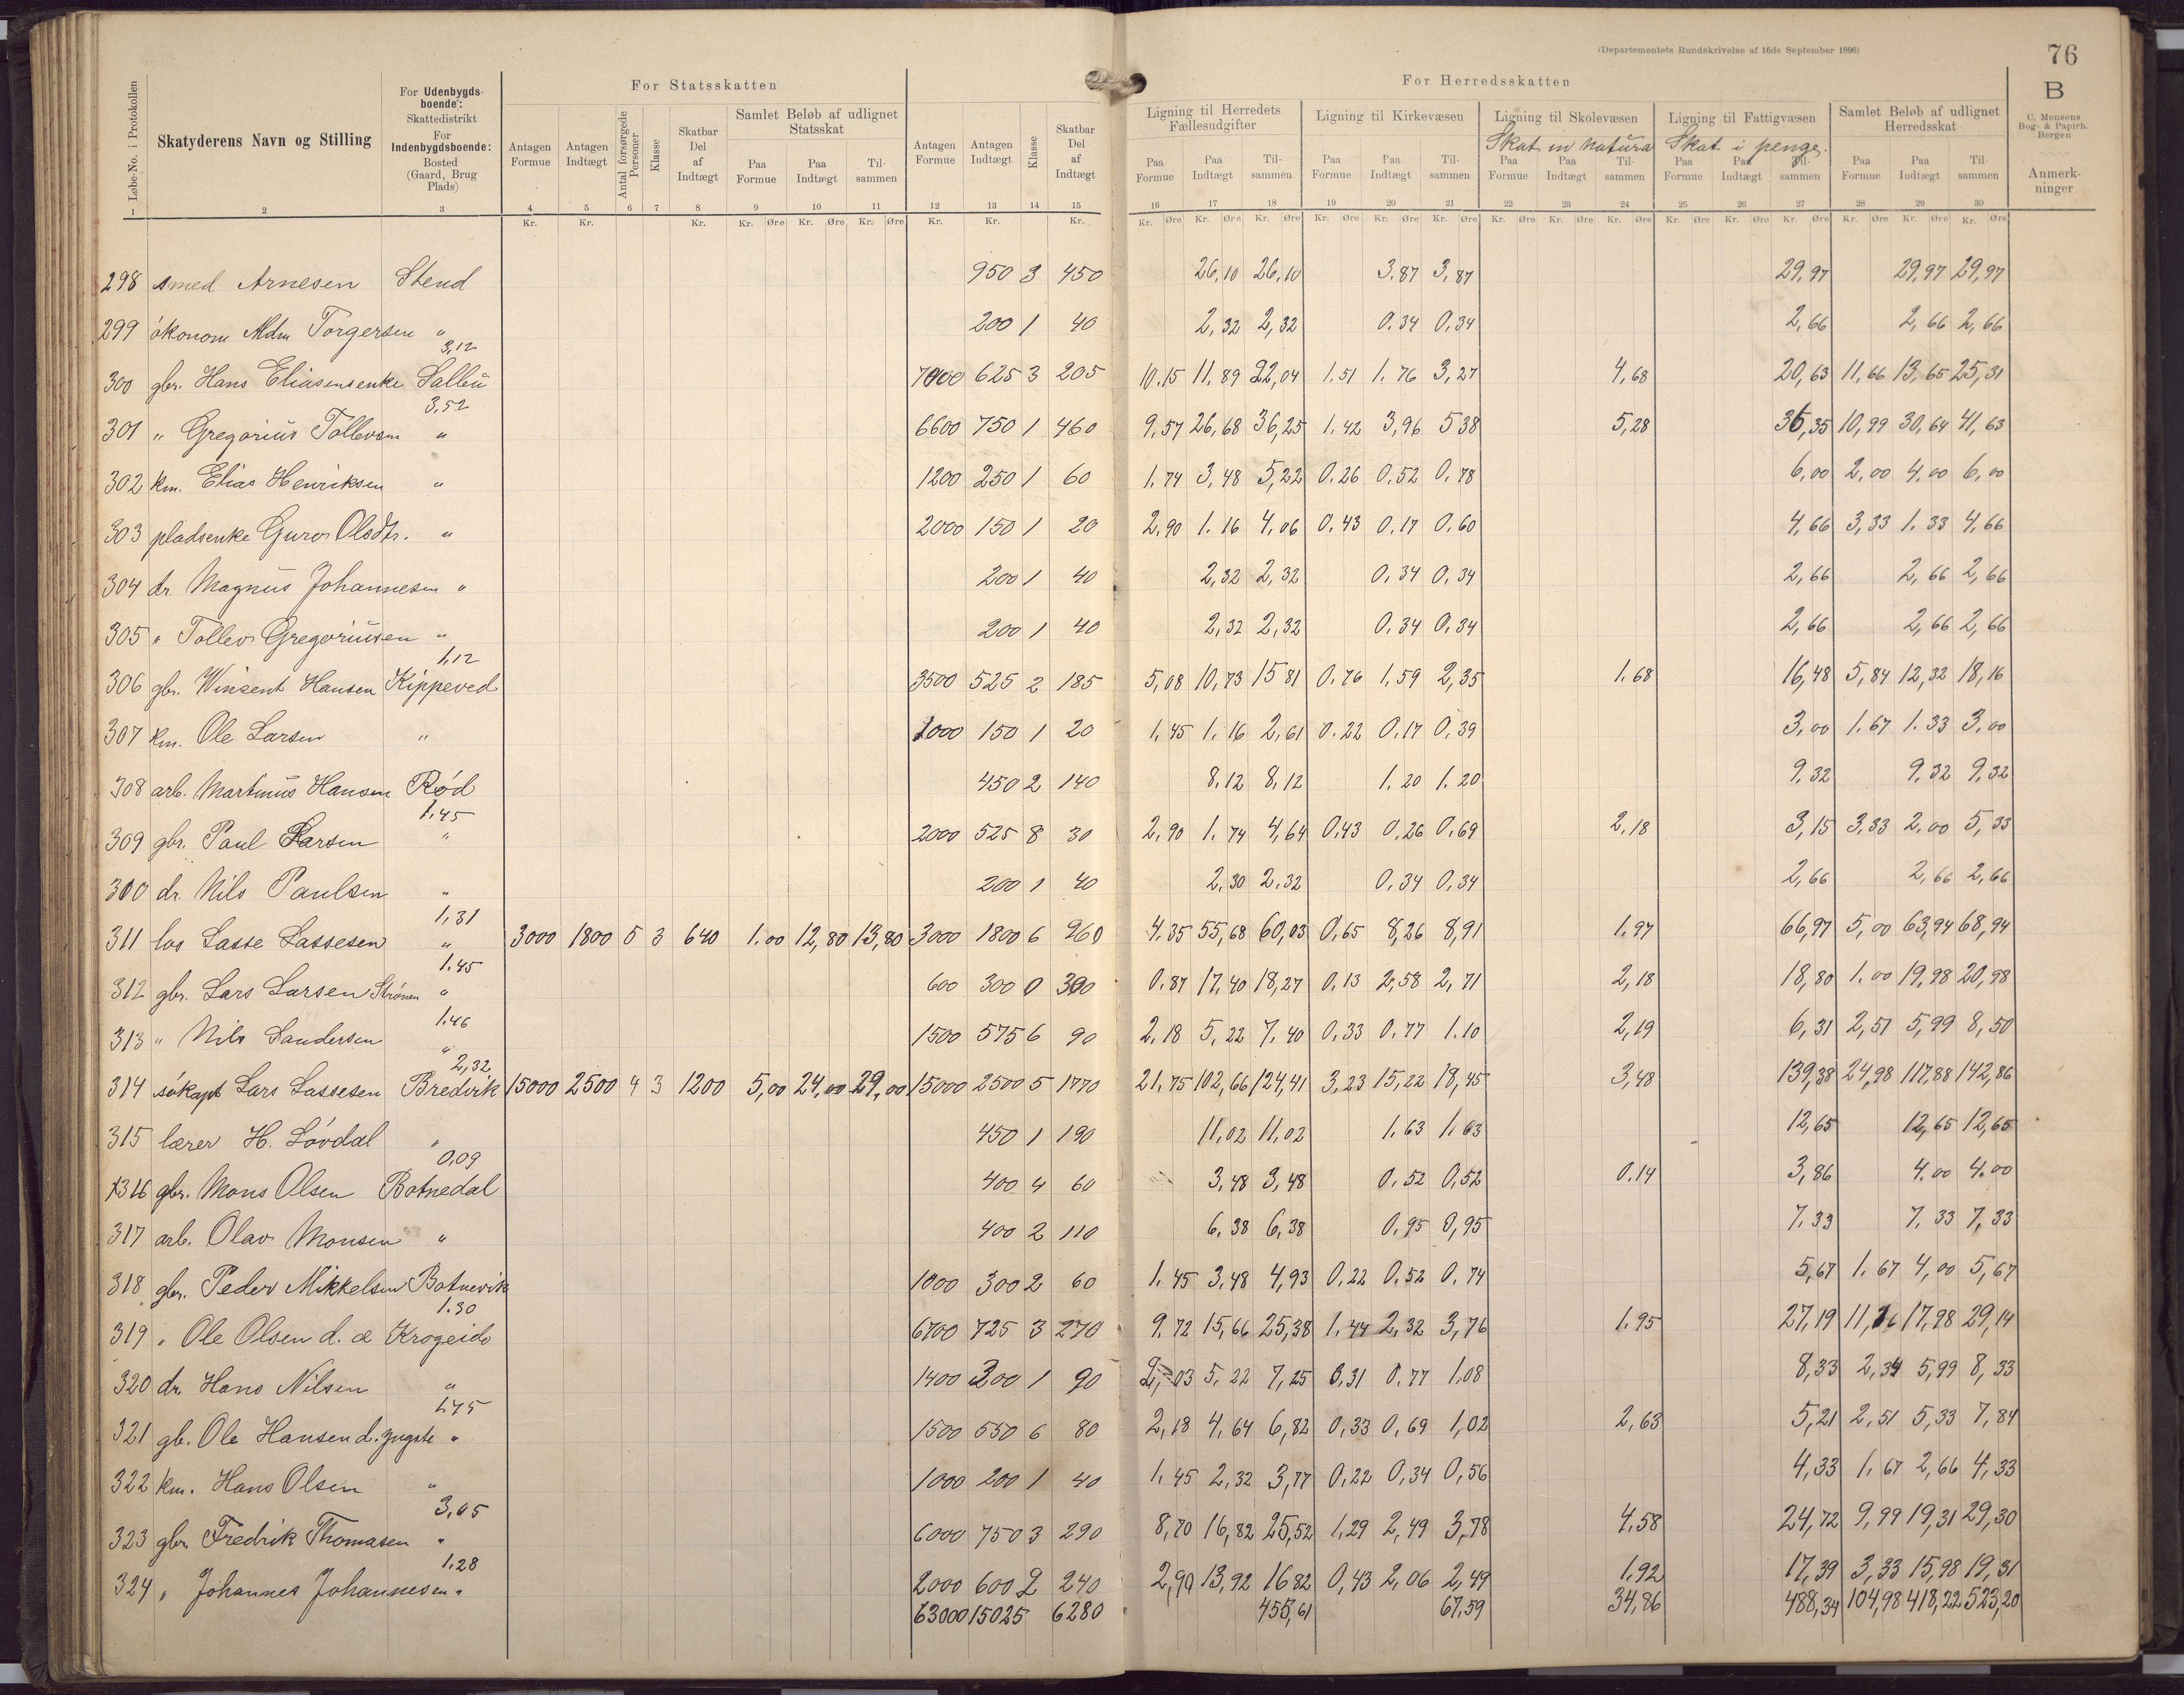 (Departementets Rundskrivelse af 16de September 1896)
76
B
C. Monsens Bog- & Papirh. Bergen
For Statsskatten
For Herredsskatten
Løbe-No. i Protokollen
Skatyderens Navn og Stilling
For Udenbygdsboende: Skattedistrikt For Indenbygdsboende: Bosted (Gaard, Brug Plads)
Antagen Formue
Antagen Indtægt
Antal forsørgede Personer
Klasse
Skatbar Del af Indtægt
Samlet Beløb af udlignet Statsskat
Paa Formue Paa Indtægt Tilsammen
Antagen Formue
Antagen Indtægt
Klasse
Skatbar Del af Indtægt
Ligning til Herredets Fællesudgifter
Paa Formue Paa Indtægt Tilsammen
Ligning til Kirkevæsen
Paa Formue Paa Indtægt Tilsammen
Ligning til Skolevæsen
Skat in natura
Paa Formue Paa Indtægt Tilsammen
Ligning til Fattigvæsen
Skat i penge.
Paa Formue Paa Indtægt Tilsammen
Samlet Beløb af udlignet Herredsskat
Paa Formue Paa Indtægt Tilsammen
Anmerkninger
1 2 3 4 5 6 7 8 9 10 11 12 13 14 15 16 17 18 19 20 21 22 23 24 25 26 27 28 29 30
Kr. Kr. Kr. Kr. Øre Kr. Øre Kr. Øre Kr. Kr. Kr. Kr. Øre Kr. Øre Kr. Øre Kr. Øre Kr. Øre Kr. Øre Kr. Øre Kr. Øre Kr. Øre Kr. Øre Kr. Øre Kr. Øre Kr. Øre Kr. Øre Kr. Øre
298 smed Arnesen Stend 950 3 450 26,10 26,10 3,87 3,87 29,97 29,97 29,97
299 økonom Mdm Torgersen " 200 1 40 2,32 2,32 0,34 0,34 2,66 2,66 2,66
3,12
300 gbr. Hans Eliasensenke Salleü 7000 625 3 205 10.15 11,89 22,04 1.51 1.76 3,27 4,68 20,63 11,66 13,65 25,31
3,52
301 " Gregorius Tollevsen " 6600 750 1 460 9,57 26,68 36,25 1.42 3,96 5 38 5,28 36,35 10,99 30,64 41,63
302 km. Elias Henriksen " 1200 250 1 60 1.74 3,48 5,22 0.26 0.52 0,78 6,00 2,00 4,00 6,00
303 pladsenke Guro Olsdtr. " 2000 150 1 20 2,90 1.16 4,06 0,43 0,17 0,60 4,66 3,33 1.33 4,66
304 dr. Magnus Johannesen " 200 1 40 2,32 2,32 0,34 0,34 2,66 2,66 2,66
305 " Tollev Gregoriusen " 200 1 40 2,32 2,32 0,34 0,34 2,66 2,66 2,66
1,12
306 gbr. Winsent Hansen Kippeved 3500 525 2 185 5,08 10,73 15 81 0.76 1,59 2,35 1.68 16,48 5,84 12,32 18,16
307 km. Ole Larsen " 1000 150 1 20 1,45 1.16 2,61 0.22 0,17 0,39 3,00 1.67 1.33 3,00
308 arb. Martinus Hansen Rød 450 2 140 8.12 8,12 1.20 1.20 9.32 9,32 9,32
1.45
309 gbr. Paul Larsen " 2000 525 8 30 2,90 1.74 4,64 0,43 0,26 0,69 2,18 3,15 3,33 2,00 5,33
310 dr. Nils Paulsen " 200 1 40 2,30 2,32 0,34 0,34 2,66 2,66 2,66
1,31
311 los Lasse Lassesen " 3000 1800 5 3 640 1.00 12,80 13,80 3000 1800 6 960 4.35 55,68 60,03 0,65 8,26 8,91 1.97 66,97 5,00 63,94 68,94
1.45
312 gbr. Lars Larsen Strønen " 600 300 0 300 0.87 17,40 18,27 0,13 2,58 2,71 2,18 18,80 1.00 19,98 20,98
1.46
313 " Nils Sandersen " 1500 575 6 90 2,18 5,22 7,40 0,33 0.77 1.10 2,19 6,31 2,51 5,99 8,50
2,32
314 søkapt Lars Lassesen Bredvik 15000 2500 4 3 1200 5,00 24,00 29,00 15000 2500 5 1770 21,75 102,66 124,41 3,23 15,22 18,45 3,48 139,38 24,98 117,88 142,86
315 lærer H. Løvdal " 450 1 190 11,02 11,02 1.63 1.63 12,65 12,65 12,65
0,09
316 gbr. Mons Olsen Botnedal 400 4 60 3,48 3,48 0,52 0,52 0.14 3,86 4.00 4.00
317 arb. Olav Monsen " 400 2 110 6,38 6,38 0,95 0,95 7,33 7,33 7,33
318 gbr. Peder Mikkelsen Botnevik 1000 300 2 60 1.45 3,48 4,93 0,22 0,52 0,74 5,67 1.67 4,00 5,67
1.30
319 " Ole Olsen d. æ Krogeide 6700 725 3 270 9,72 15,66 25,38 1.44 2,32 3,76 1.95 27,19 11,16 17,98 29,14
320 dr. Hans Nilsen " 1400 300 1 90 2,03 5,22 7,25 0,31 0,77 1,08 8,33 2,34 5,99 8,33
1.75
321 gb. Ole Hansen d. yngste " 1500 550 6 80 2,18 4,64 6,82 0,33 0,69 1,02 2,63 5,21 2,51 5,33 7,84
322 km. Hans Olsen " 1000 200 1 40 1.45 2,32 3,77 0,22 0,34 0,56 4,33 1.67 2,66 4,33
3,05
323 gbr. Fredrik Thomasen " 6000 750 3 290 8,70 16,82 25,52 1,29 2,49 3,78 4.58 24,72 9,99 19,31 29,30
1,28
324 " Johannes Johannesen " 2000 600 2 240 2,90 13,92 16 82 0,43 2,06 2,49 1.92 17,39 3,33 15,98 19,31
63000 15025 6280 455,61 67,59 34,86 488,34 104,98 418,22 523,20